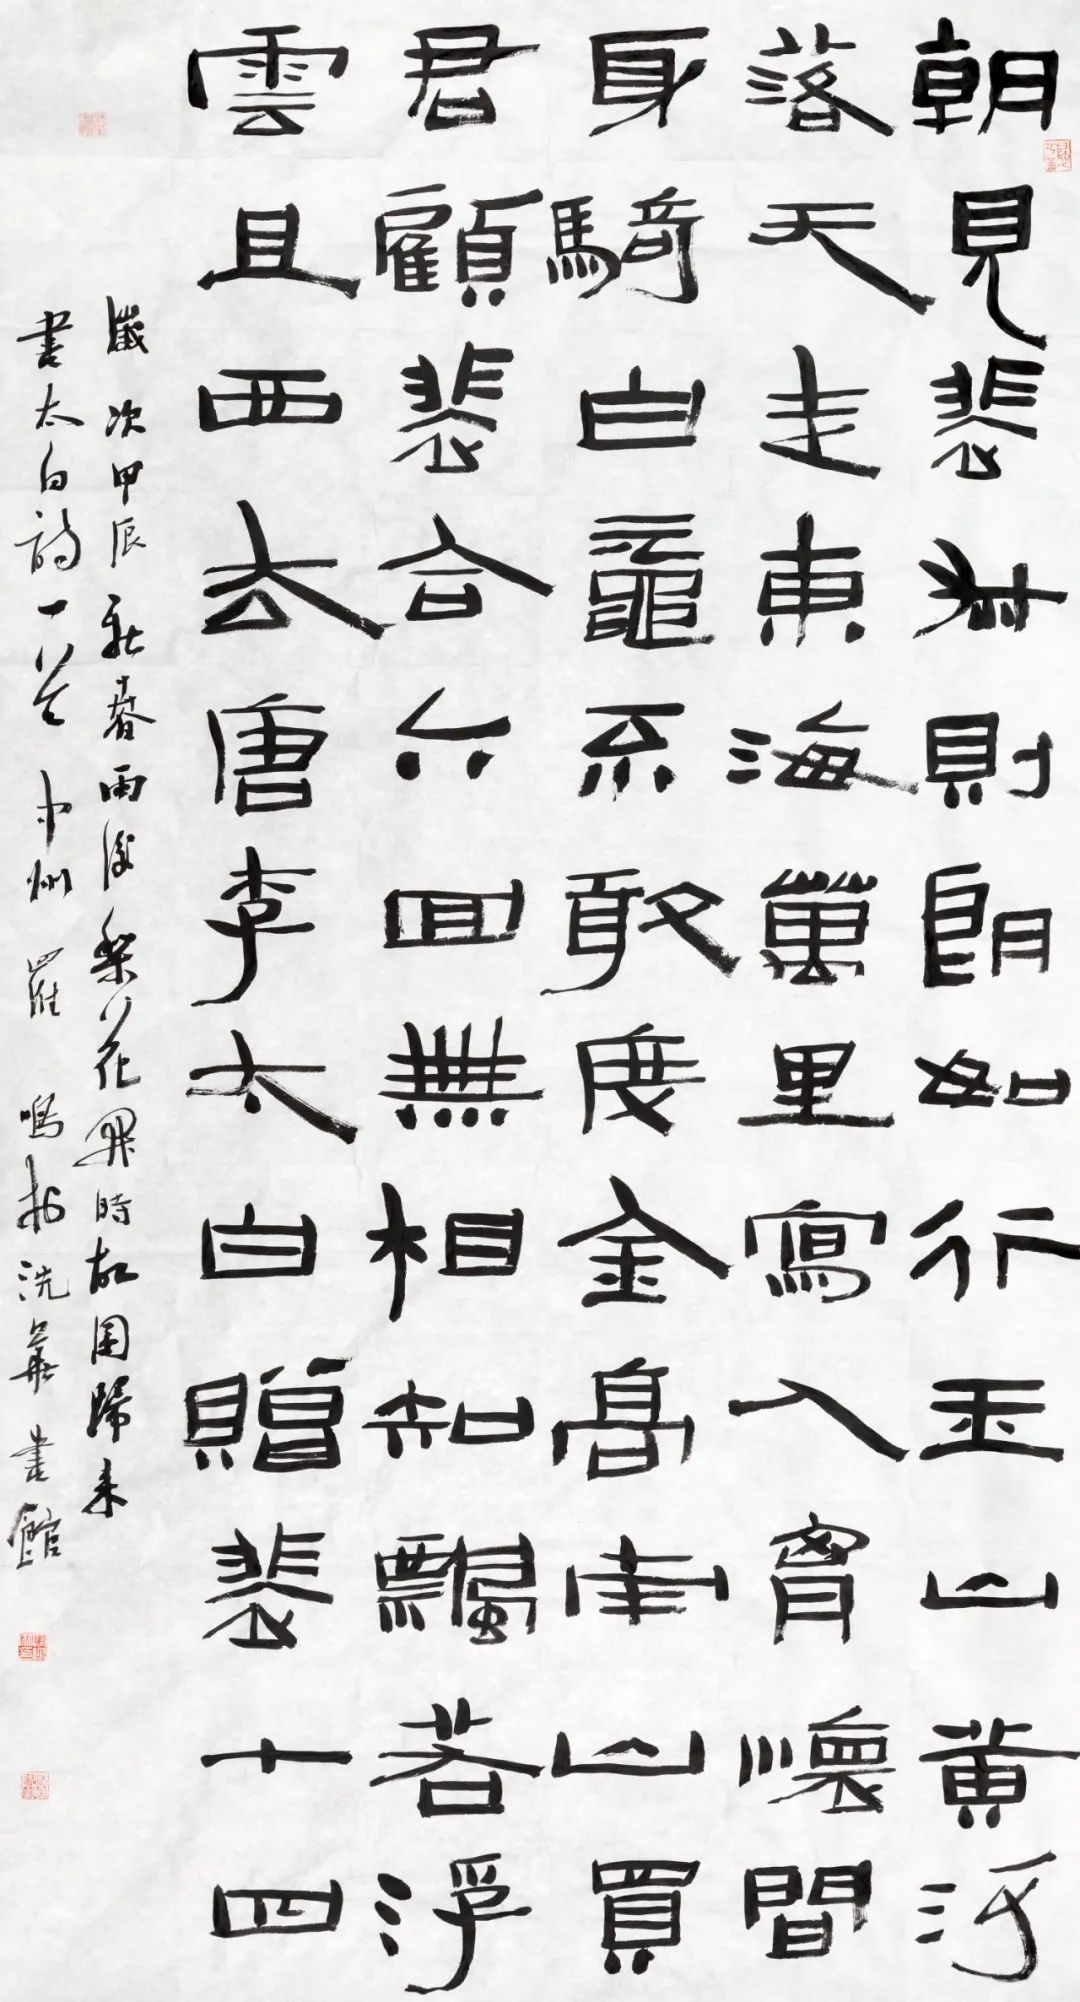 朝見裴叔則朗如行玉山黃河
落天走東海萬里寫入胷懷間
身騎白黿不敢度金高南山買
君顧裴合六回無相知飄若浮
雲且西去唐李太白贈裴十四
歲次甲辰新春雨後梨花開時故園歸來
書太白詩一首中州羅鳴於洗華書館